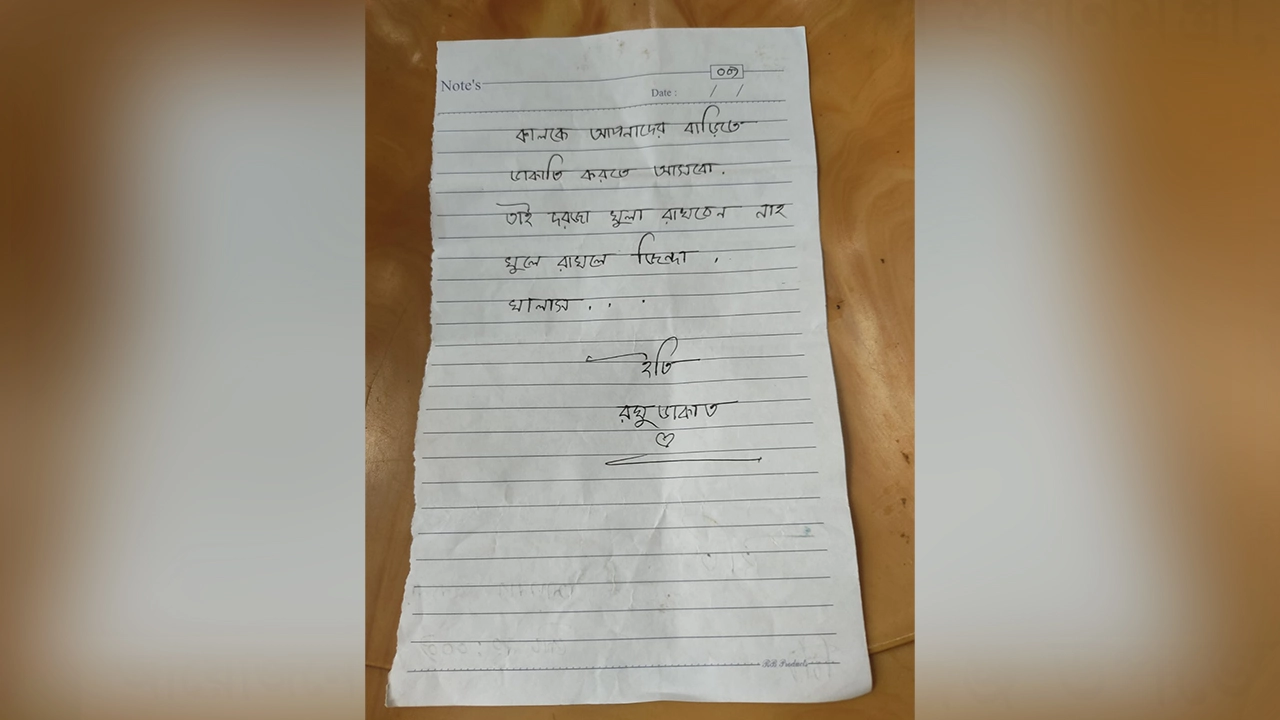 Note's
০৩
Date : / /
কালকে আপনাদের বাড়িতে
ডাকাতি করতে আসবো.
তাই দরজা খুলা রাখবেন নাহ
খুলে রাখলে জিন্দা .
খালাস . . .
ইতি
রঘু ডাকাত
♡
RR Products